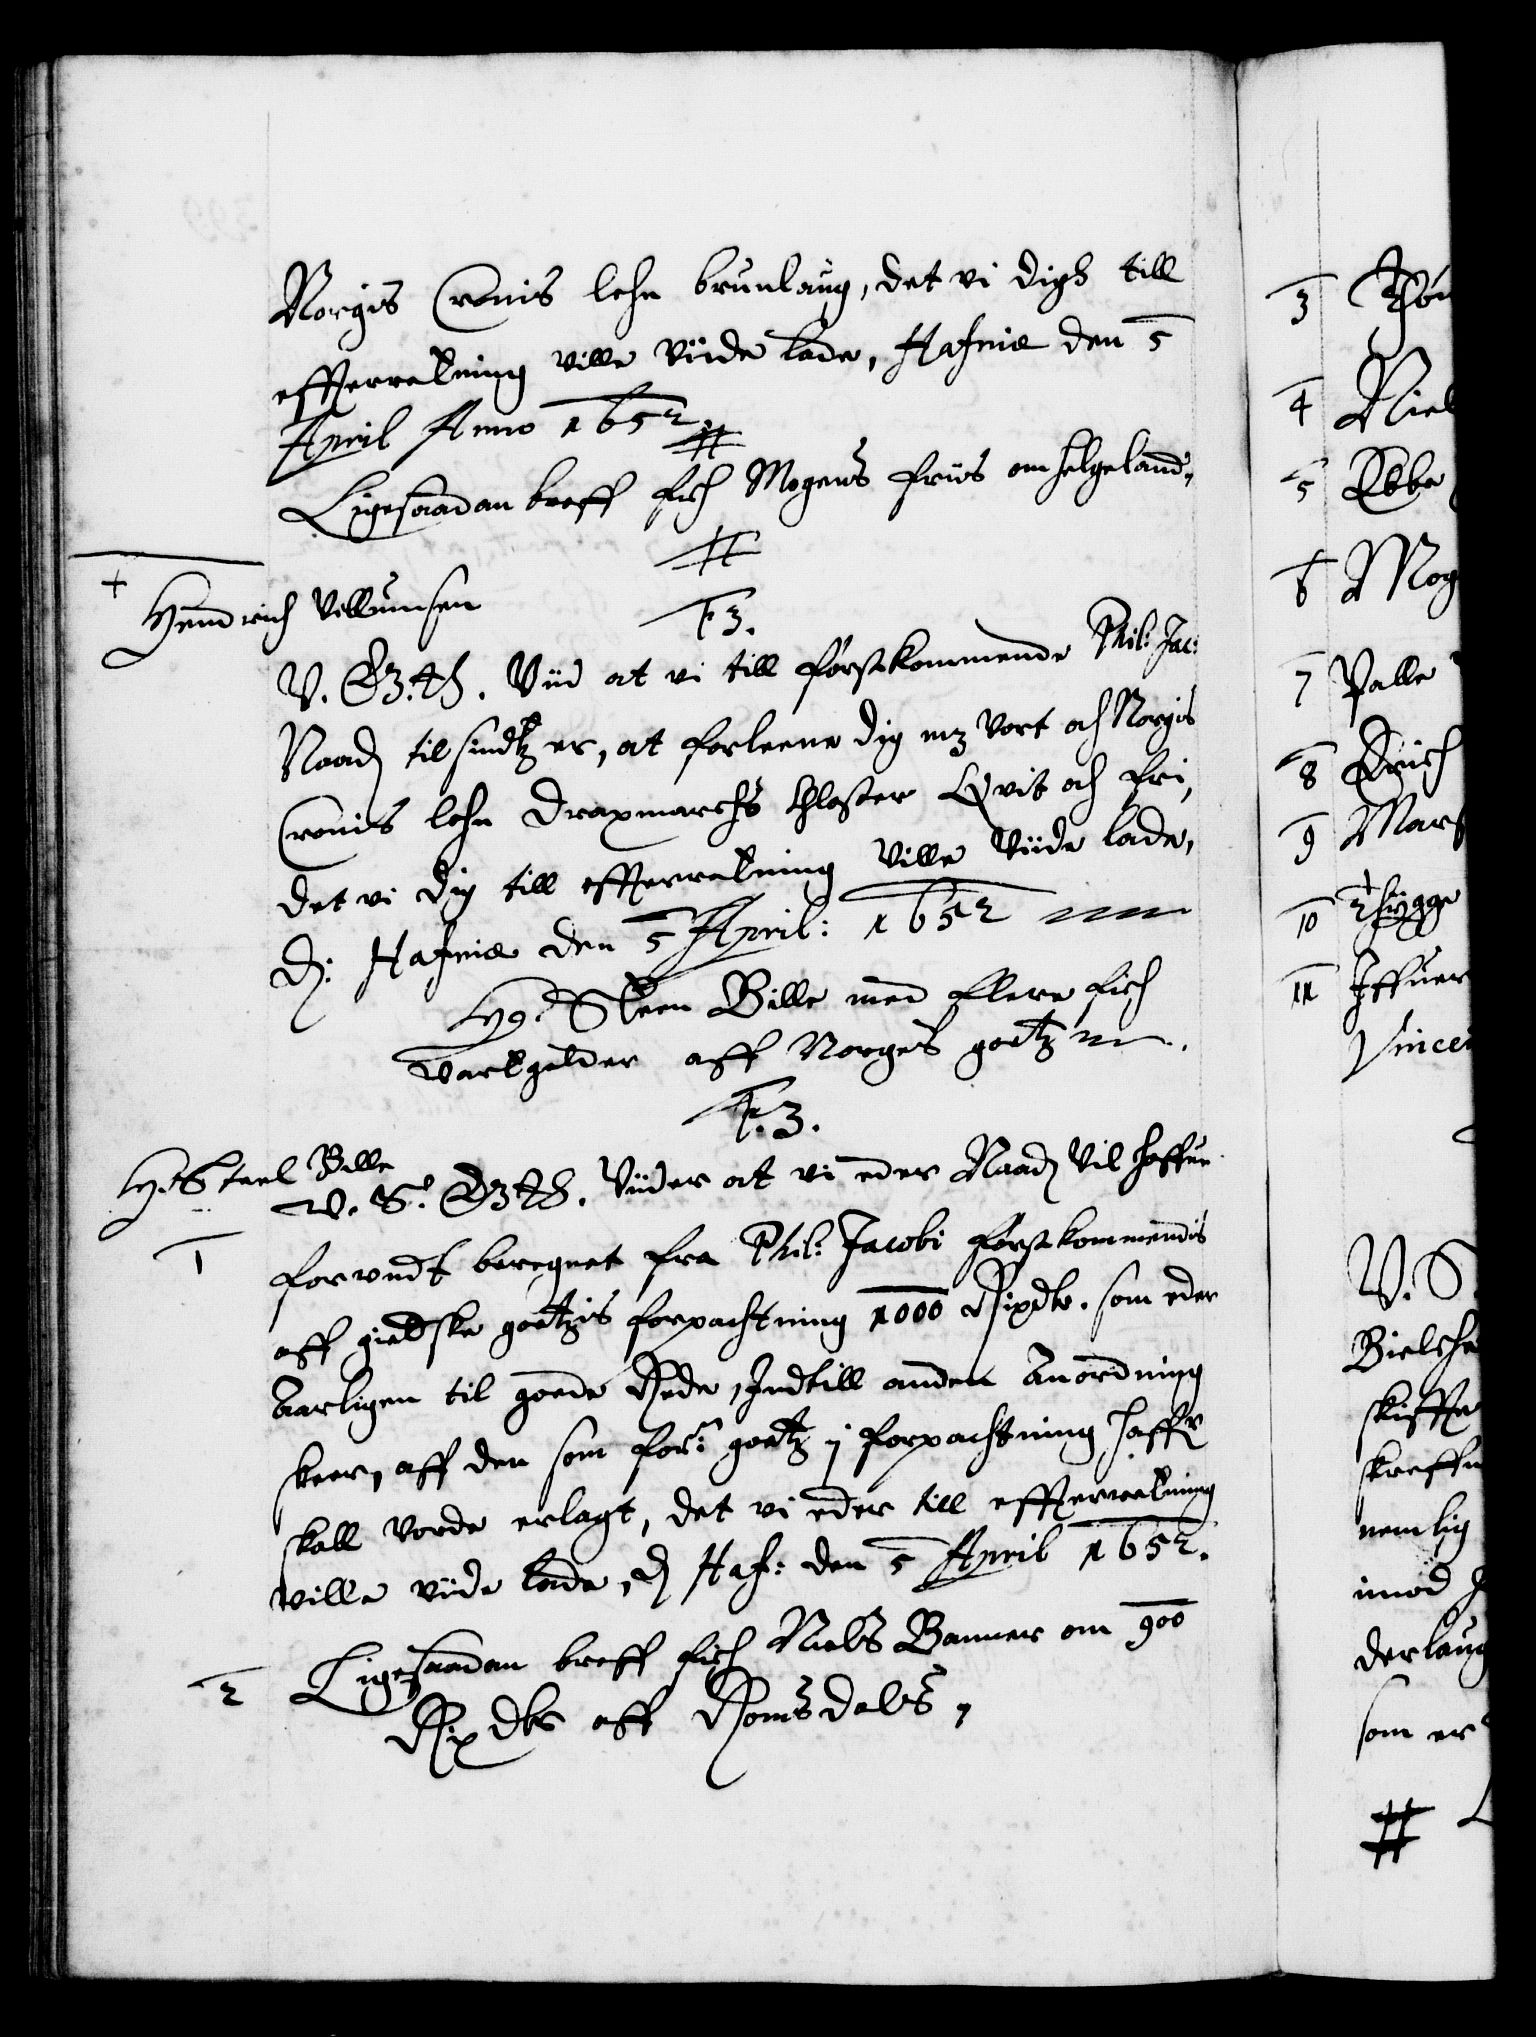 Norgis Cronis lehn brunlaug, det vi digh till
effterretning ville viide lade, Hafniæ den 5
April Anno 1652
Ligesaadan breff fich Mogens friis om helgeland,
+
Hendrich Villumsen
F3.
V. G. t. Viid at vi till førstkommende Phil: Jac:
Naad: til sindtz er, at forleene dig mz Vort och Norgis
Cronis lehn Dragmarchs Closter Qvit och fri,
det vi dig till effterretning Ville Viide lade,
D: Hafniæ den 5 April: 1652
Hr: Steen Bille med flere fich
Vartgelder aff Norges goetz
F.3.
H: Steel Bille
V. S. G. t. Viider at vi eder Naad: Vil haffue
1
forundt beregnet fra Phil: Jacobi førstkommendis
aff giedske goetzis forpachtning 1000 Rixdlr. som eder
Aarligen til goede Rede, Indtill anden Anordning
skeer, aff den som for: goetz j forpachtning haffr
skall vorde erlagt, det vi eder till effterretning
ville viide lade, D: Haf: den 5 April 1652.
2 Ligesaadan breff fich Niels Banner om 900
Rixdlr aff Romsdals,
3
4 Niel
5 Ebbe
6 Mog
7 Palle
8 Erich
9 Mar
10 Thygge
11 Iffuer
Vincen
V. S.
Bielche
skiffte
skreffu
nemlig
imod
derlaug
som er
#